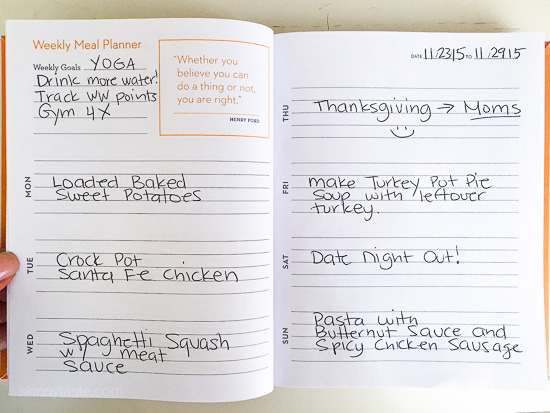 Weekly Meal Planner
Weekly Goals YOGA
Drink more water!
Track WW points
Gym 4X
"Whether you
believe you can
do a thing or not,
you are right."
HENRY FORD
MON
Loaded Baked
Sweet Potatoes
TUE
Crock Pot
Santa Fe Chicken
WED
Spaghetti Squash
w/ meat
Sauce
skinnytaste.com
DATE 11/23/15 TO 11/29/15
THU
Thanksgiving → Moms
FRI
make Turkey Pot Pie
Soup with leftover
turkey.
SAT
Date Night Out!
SUN
Pasta with
Butternut Sauce and
Spicy Chicken Sausage